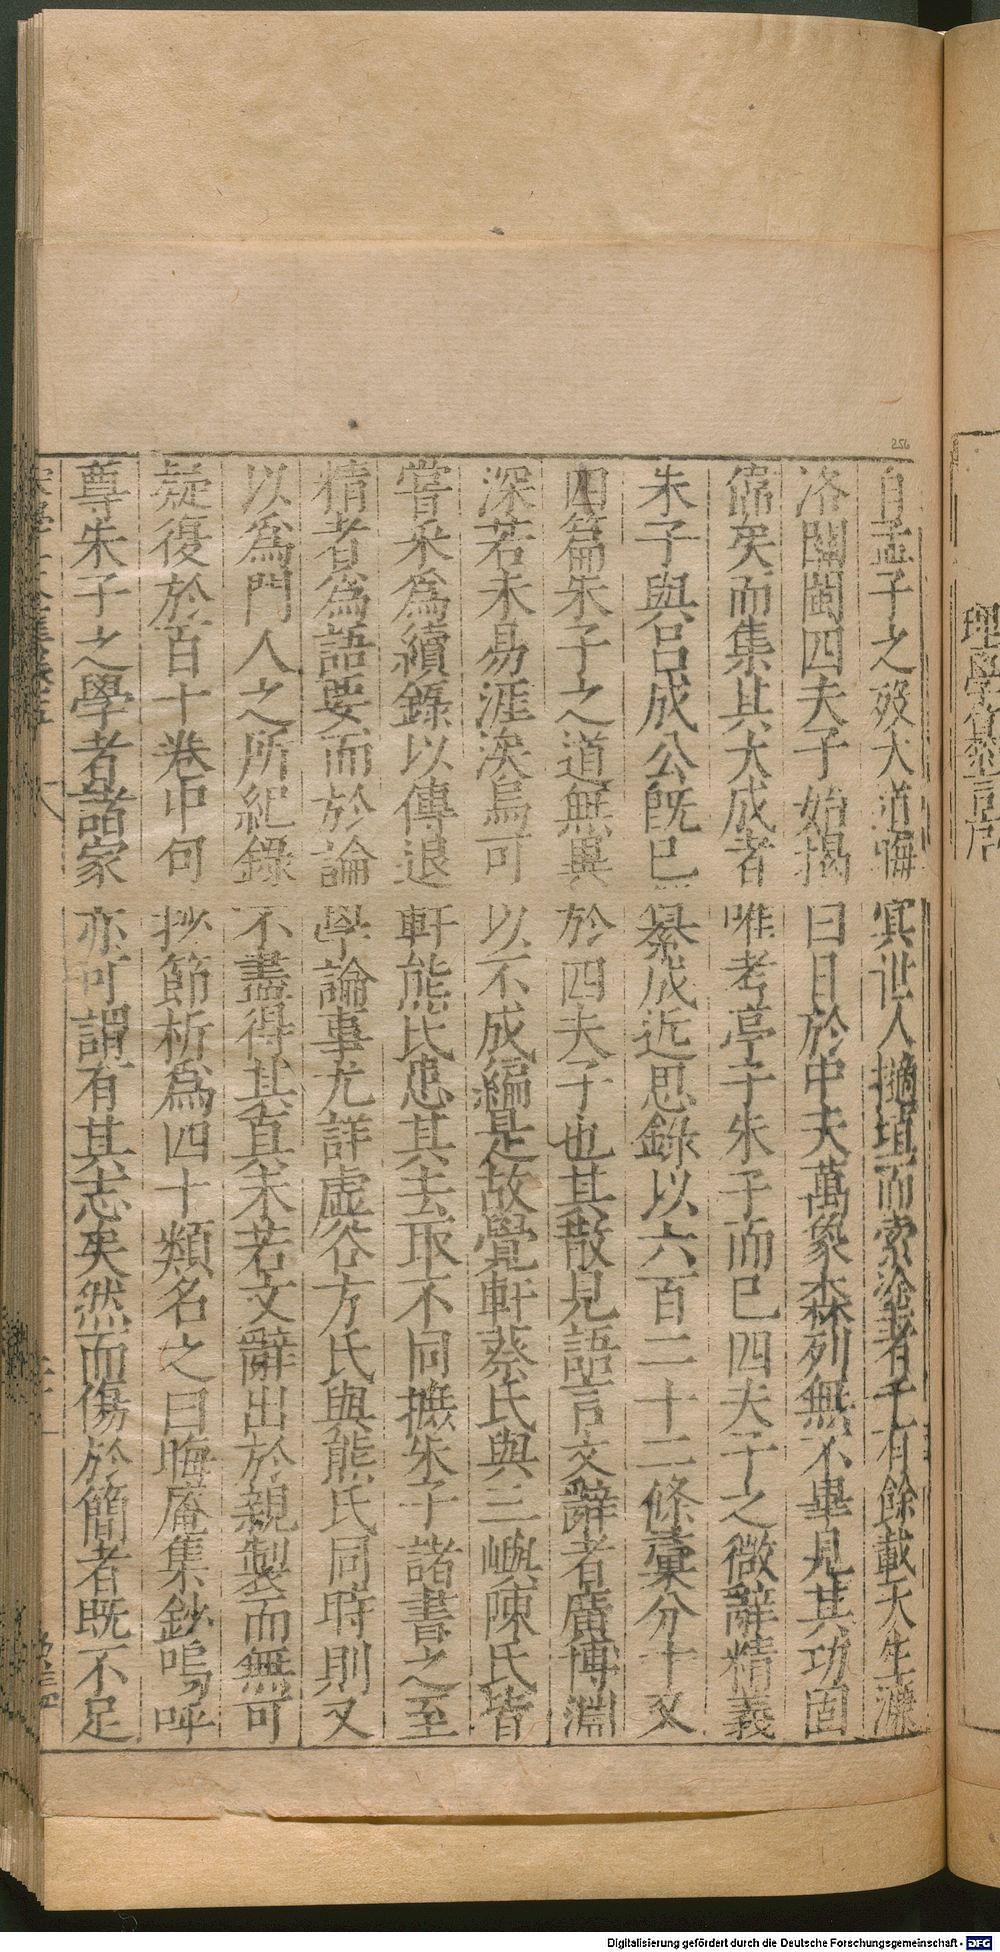 自孟子之歿大道晦冥世人擿埴而索塗者千有餘載天生濂
洛關閩四夫子始揭日月於中天萬象森列無不畢見其功固
偉矣而集其大成者唯考亭子朱子而已四夫子之微辭精義
朱子與呂成公既已纂成近思錄以六百二十二條彙分十又
四篇朱子之道無異於四夫子也其散見語言文辭者廣博淵
深若未易涯涘烏可以不成編是故覺軒蔡氏與三嶼陳氏皆
嘗采為續錄以傳退軒熊氏患其去取不同摭朱子諸書之至
精者為語要而於論學論事尤詳虛谷方氏與熊氏同時則又
以為門人之所紀錄不盡得其真未若文辭出於親製而無可
疑復於百十卷中句抄節析為四十類名之曰晦庵集鈔嗚呼
尊朱子之學者諸家亦可謂有其志矣然而傷於簡者既不足
256
Digitalisierung gefördert durch die Deutsche Forschungsgemeinschaft - DFG